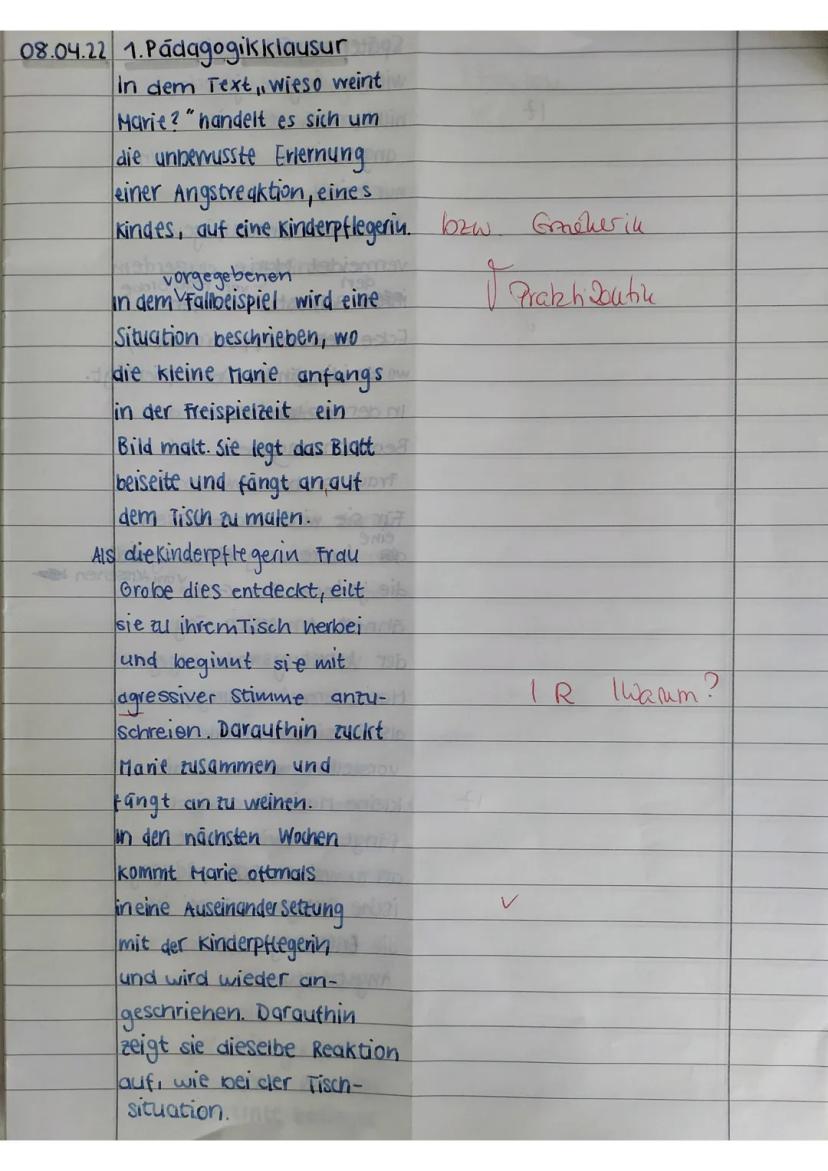 08.04.22 1. Pädagogikklausur
In dem Text „Wieso weint
Marie?" handelt es sich um
die unbewusste Erlernung
einer Angstreaktion, eines
Kindes, auf eine Kinderpflegerin. bzw. Erzieherin
vorgegebenen
In dem Fallbeispiel wird eine Praktikantin
Situation beschrieben, wo
die kleine Marie anfangs
in der Freispielzeit ein
Bild malt. Sie legt das Blatt
beiseite und fängt an, auf
dem Tisch zu malen.
Als die Kinderpflegerin Frau
Grobe dies entdeckt, eilt
sie zu ihrem Tisch herbei
und beginnt sie mit
agressiver Stimme anzu- I R I Warum?
schreien. Daraufhin zuckt
Marie zusammen und
fängt an zu weinen.
In den nächsten Wochen
kommt Marie oftmals
in eine Auseinandersetzung ✓
mit der Kinderpflegerin,
und wird wieder an-
geschriehen. Daraufhin
zeigt sie dieselbe Reaktion
auf, wie bei der Tisch-
situation.